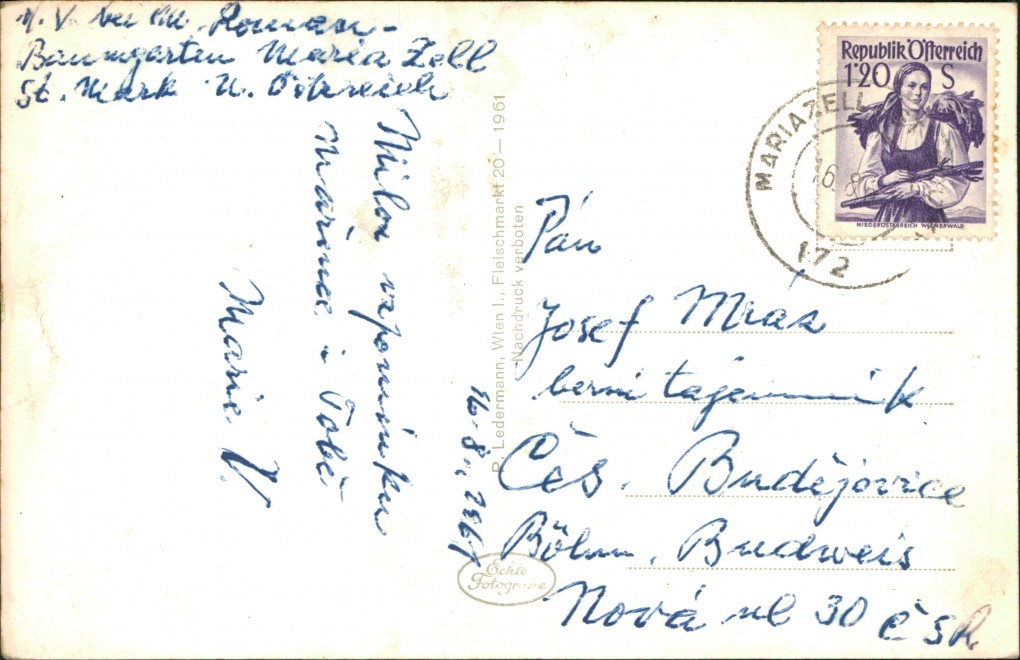 M. V. bei M. Roman-
Baumgarten Maria Zell
St. Mark N. Östreich
Milou vzpomínku
Mařence i Tobě
Marie V.
16. 8. 1961
P. Ledermann, Wien I., Fleischmarkt 20 — 1961
Nachdruck verboten
Echte
Fotografie
Republik Österreich
1·20 S
NIEDERÖSTERREICH WIENERWALD
MARIAZELL
172
Pán
Josef Mraz
berni tajemník
Čes. Budějovice
Böhm. Budweis
Nová ul 30 ČSR